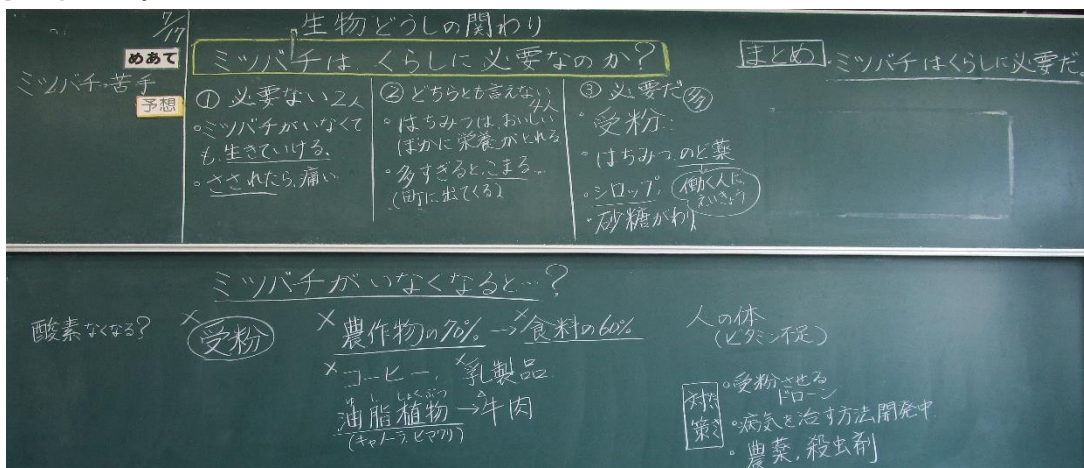 7/17
生物どうしの関わり
めあて
ミツバチは くらしに必要なのか?
ミツバチ→苦手
予想
① 必要ない 2人
・ミツバチがいなくて
も、生きていける。
・さされたら、痛い
② どちらとも言えない
4人
・はちみつは、おいしい
ほかに栄養がとれる
・多すぎると、こまる…
(町に出てくる)
③ 必要だ 多
・受粉
・はちみつ、のど薬
・シロップ、
働く人に
えいきょう
・砂糖がわり
まとめ ・ミツバチはくらしに必要だ。
ミツバチがいなくなると…?
酸素なくなる?
×受粉
×農作物の70%→×食料の60%
×コーヒー、×乳製品
ゆ し しょくぶつ
油脂植物→牛肉
(キャノーラ、ヒマワリ)
人の体
(ビタミン不足)
対たい
策さく
・受粉させる
ドローン
・病気を治す方法開発中
・農薬、殺虫剤